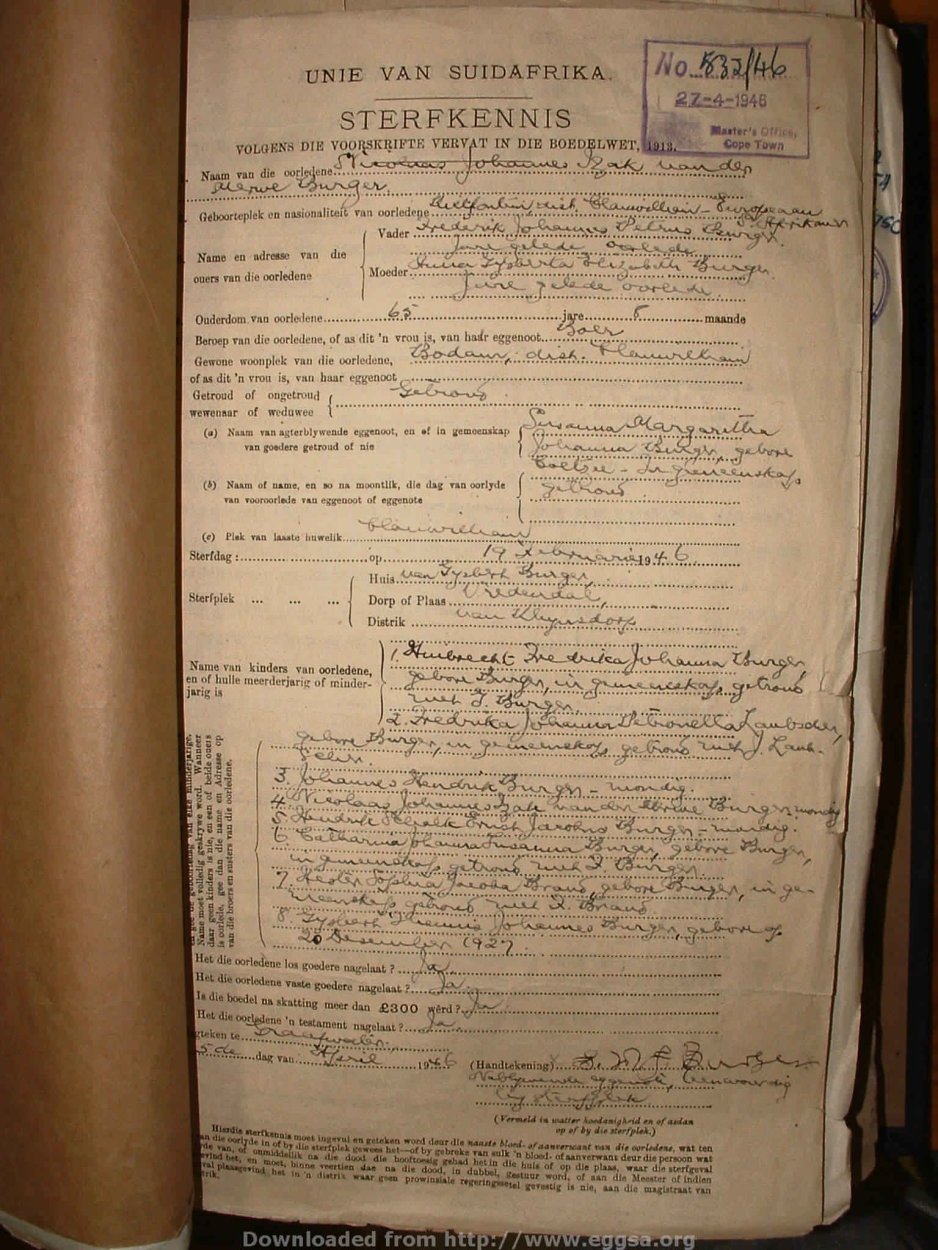 UNIE VAN SUIDAFRIKA.
No. 832/46
27-4-1946
Master's Office,
Cope Town
STERFKENNIS
VOLGENS DIE VOORSKRIFTE VERVAT IN DIE BOEDELWET, 1913.
Naam van die oorledene Nicolaas Johannes Izak van der
Merwe Burger.
Geboorteplek en nasionaliteit van oorledene dist. Clanwilliam - Europeaan
S. Afrikaner
Name en adresse van die ouers van die oorledene
Vader Frederik Johannes Petrus Burger
Jare gelede oorlede
Moeder Gysberta Elizabeth Burger
Jare gelede oorlede.
Ouderdom van oorledene 65 jare 8 maande
Beroep van die oorledene, of as dit 'n vrou is, van haar eggenoot Boer
Gewone woonplek van die oorledene, dist. Clanwilliam
of as dit 'n vrou is, van haar eggenoot
Getroud of ongetroud Getroud
wewenaar of weduwee
(a) Naam van agterblywende eggenoot, en of in gemeenskap van goedere getroud of nie
Susanna Margaretha
Johanna Burger, gebore
Coetzee - In gemeenskap
getroud
(b) Naam of name, en so na moontlik, die dag van oorlyde van vooroorlede van eggenoot of eggenote
(c) Plek van laaste huwelik Clanwilliam
Sterfdag: op 19 Februarie 1946
Sterfplek
Huis van Gysbert Burger,
Dorp of Plaas Vredendal,
Distrik van Rhynsdorp
Name van kinders van oorledene,
en of hulle meerderjarig of minder-
jarig is
1. Huibrecht Fredrika Johanna Burger,
gebore Burger, in gemeenskap getroud
met J. Burger.
2. Fredrika Johanna Petronella Laubscher,
gebore Burger, in gemeenskap getroud met J. Laub-
scher.
3. Johannes Hendrik Burger - mondig.
4. Nicolaas Johannes Izak van der Merwe Burger - mondig
5. Hendrik Schalk Jacobus Burger - mondig.
6. Catharina Johanna Susanna Burger, gebore Burger,
in gemeenskap getroud met Burger
7. Hester Sophia Jacoba Brand, gebore Burger, in ge-
meenskap getroud met Brand
8. Gysbert Johannes Burger, gebore op
20 Desember 1927.
Name moet volledig geskrywe word. Wanneer
daar geen kinders is nie, en een of beide ouers
is oorlede, gee dan die name en Adresse op
van die broers en susters van die oorledene.
Het die oorledene los goedere nagelaat? Ja
Het die oorledene vaste goedere nagelaat? Ja
Is die boedel na skatting meer dan £300 wêrd? Ja
Het die oorledene 'n testament nagelaat? Ja
Geteken te Graafwater
5de dag van April 1946
(Handtekening) S. M. J. Burger
Nablywende eggenote, teenwoordig
by sterfplek
(Vermeld in watter hoedanigheid en of asdan
op of by die sterfplek.)
Hierdie sterfkennis moet ingevul en geteken word deur die naaste bloed- of aanverwant van die oorledene, wat ten
die oorlyde in of by die sterfplek gewees het—of by gebreke van sulk 'n bloed- of aanverwant deur die persoon wat
van, of onmiddellik na die dood die hooftoesig gehad het in die huis of op die plaas, waar die sterfgeval
het, en moet, binne veertien dae na die dood, in dubbel, gestuur word, of aan die Meester of indien
plaasgevind het in 'n distrik waar geen provinsiale regeringsetel gevestig is nie, aan die magistraat van
Downloaded from http://www.eggsa.org